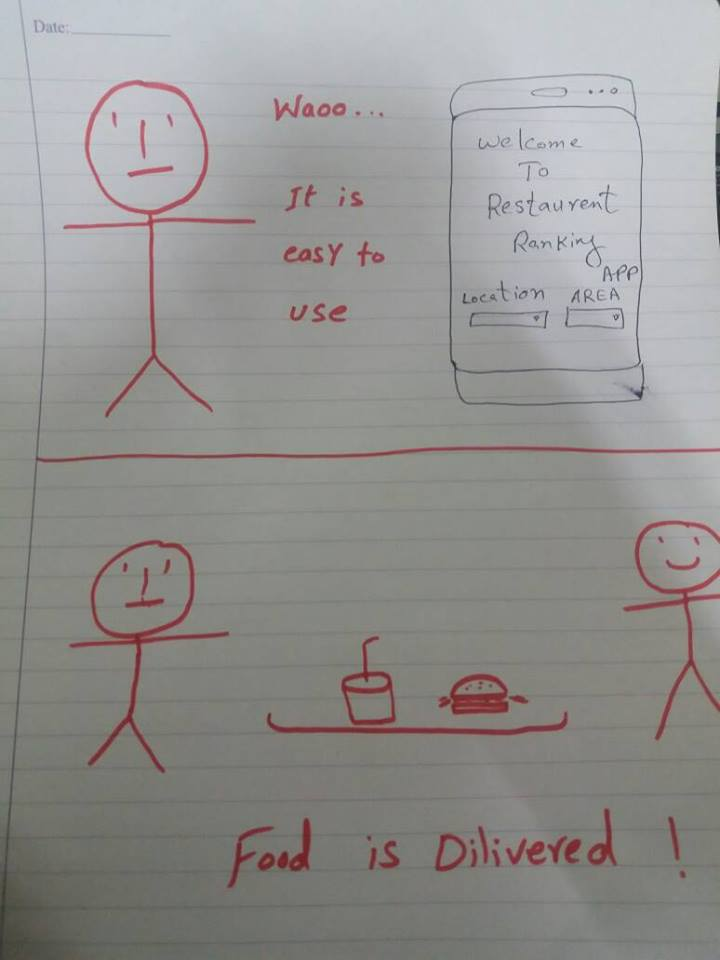 Date:
Waoo...
It is
easy to
use
Welcome
To
Restaurent
Ranking
APP
Location AREA
Food is Dilivered !